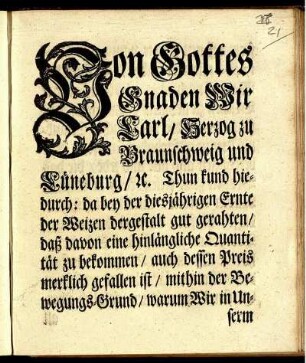 21
Von Gottes
Gnaden Wir
Carl/ Herzog zu
Braunschweig und
Lüneburg/ ꝛc. Thun kund hie-
durch: da bey der diesjährigen Ernte
der Weizen dergestalt gut gerahten/
daß davon eine hinlängliche Quanti-
tät zu bekommen/ auch dessen Preis
merklich gefallen ist/ mithin der Be-
wegungs-Grund/ warum Wir in Un-
serm